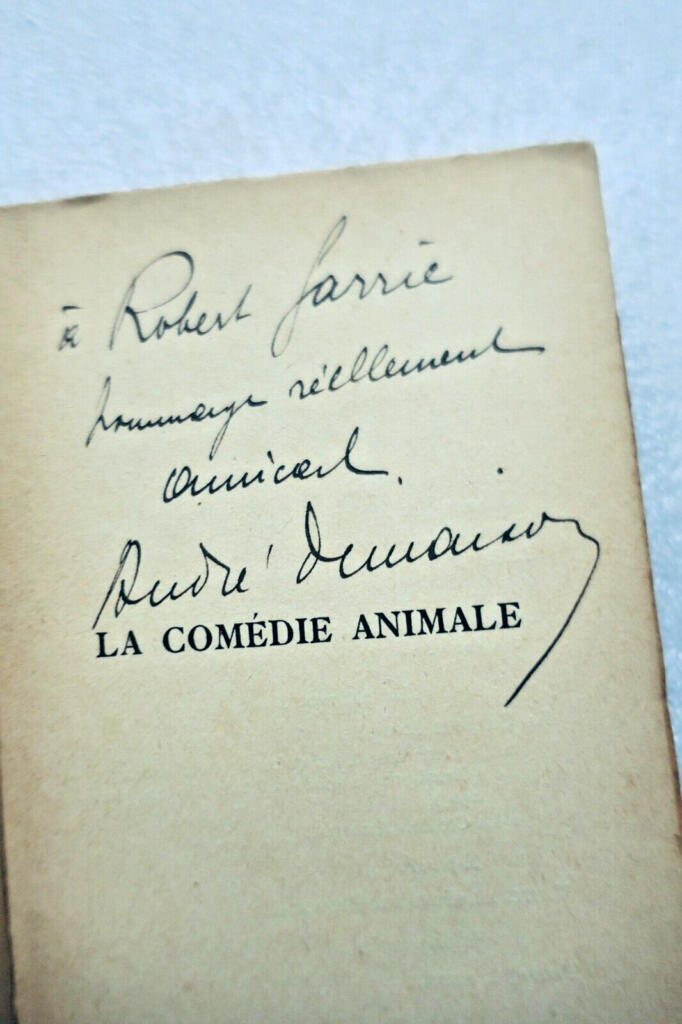 à Robert Garric
hommage réellement
amical.
André Demaison
LA COMÉDIE ANIMALE